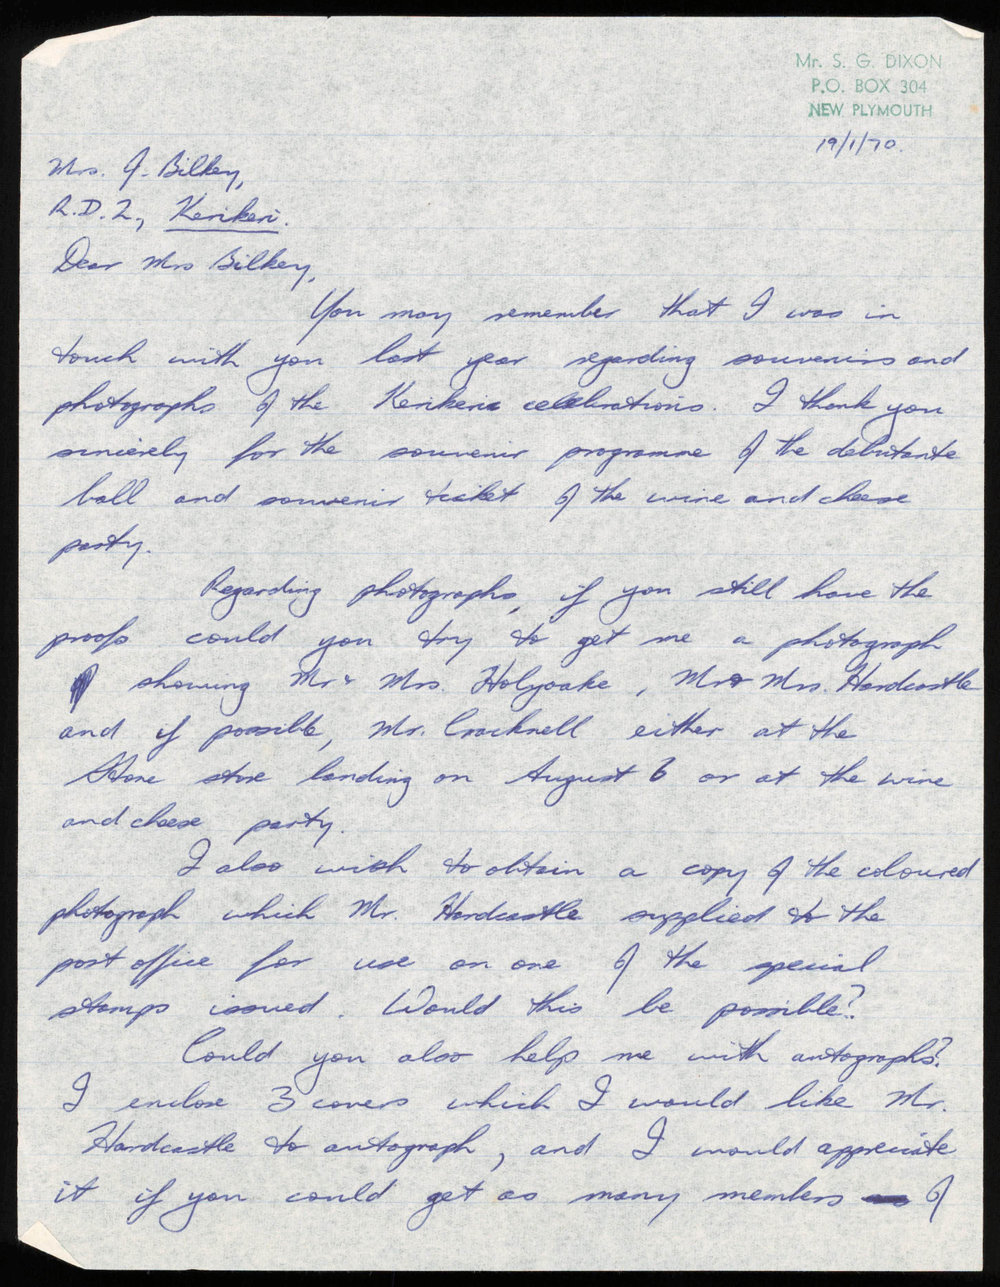 Mr. S. G. DIXON
P.O. BOX 304
NEW PLYMOUTH
19/1/70.
Mrs. J. Bilkey,
R.D.2, Kerikeri.
Dear Mrs Bilkey,
You may remember that I was in
touch with you last year regarding souvenirs and
photographs of the Kerikeri celebrations. I thank you
sincerely for the souvenir programme of the debutante
ball and souvenir ticket of the wine and cheese
party.
Regarding photographs, if you still have the
proofs could you try to get me a photograph
showing Mr & Mrs. Holyoake, Mr & Mrs. Hardcastle
and if possible, Mr. Cracknell either at the
Stone store landing on August 6 or at the wine
and cheese party.
I also wish to obtain a copy of the coloured
photograph which Mr. Hardcastle supplied to the
post office for use on one of the special
stamps issued. Would this be possible?
Could you also help me with autographs?
I enclose 3 covers which I would like Mr.
Hardcastle to autograph, and I would appreciate
it if you could get as many members of